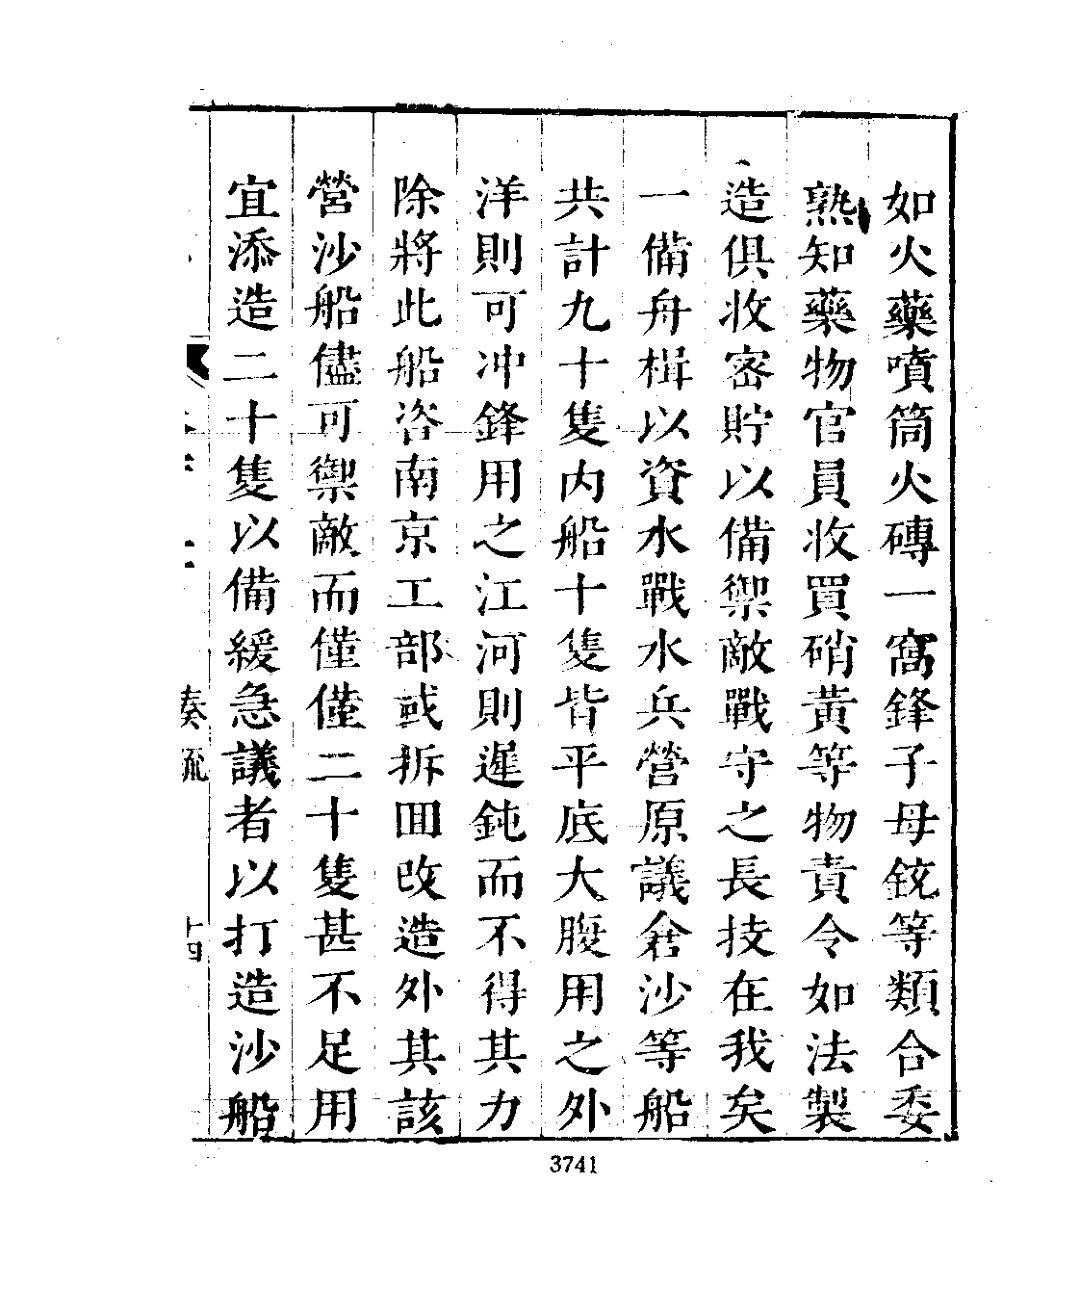 如火藥噴筒火磚一窩鋒子母銃等類合委
熟知藥物官員收買硝黃等物責令如法製
造俱收密貯以備禦敵戰守之長技在我矣
一備舟楫以資水戰水兵營原議倉沙等船
共計九十隻內船十隻皆平底大腹用之外
洋則可冲鋒用之江河則遲鈍而不得其力
除將此船咨南京工部或拆回改造外其該
營沙船儘可禦敵而僅僅二十隻甚不足用
宜添造二十隻以備緩急議者以打造沙船
奏疏
十四
3741